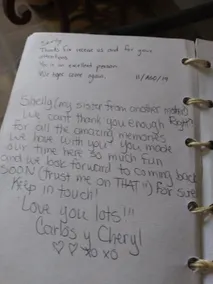 Thanks for and for your
You're an excellent person
We hope come again.
Shelly (my sister from another sister)
We can't thank you enough
for all the amazing memories
we have with you! You made
our time here so much fun
and we look forward to coming back
SOON (trust me on THAT !!) for sure
Keep in touch!
Love you lots!!!
Carlos y Cheryl
♡♡ xo xo